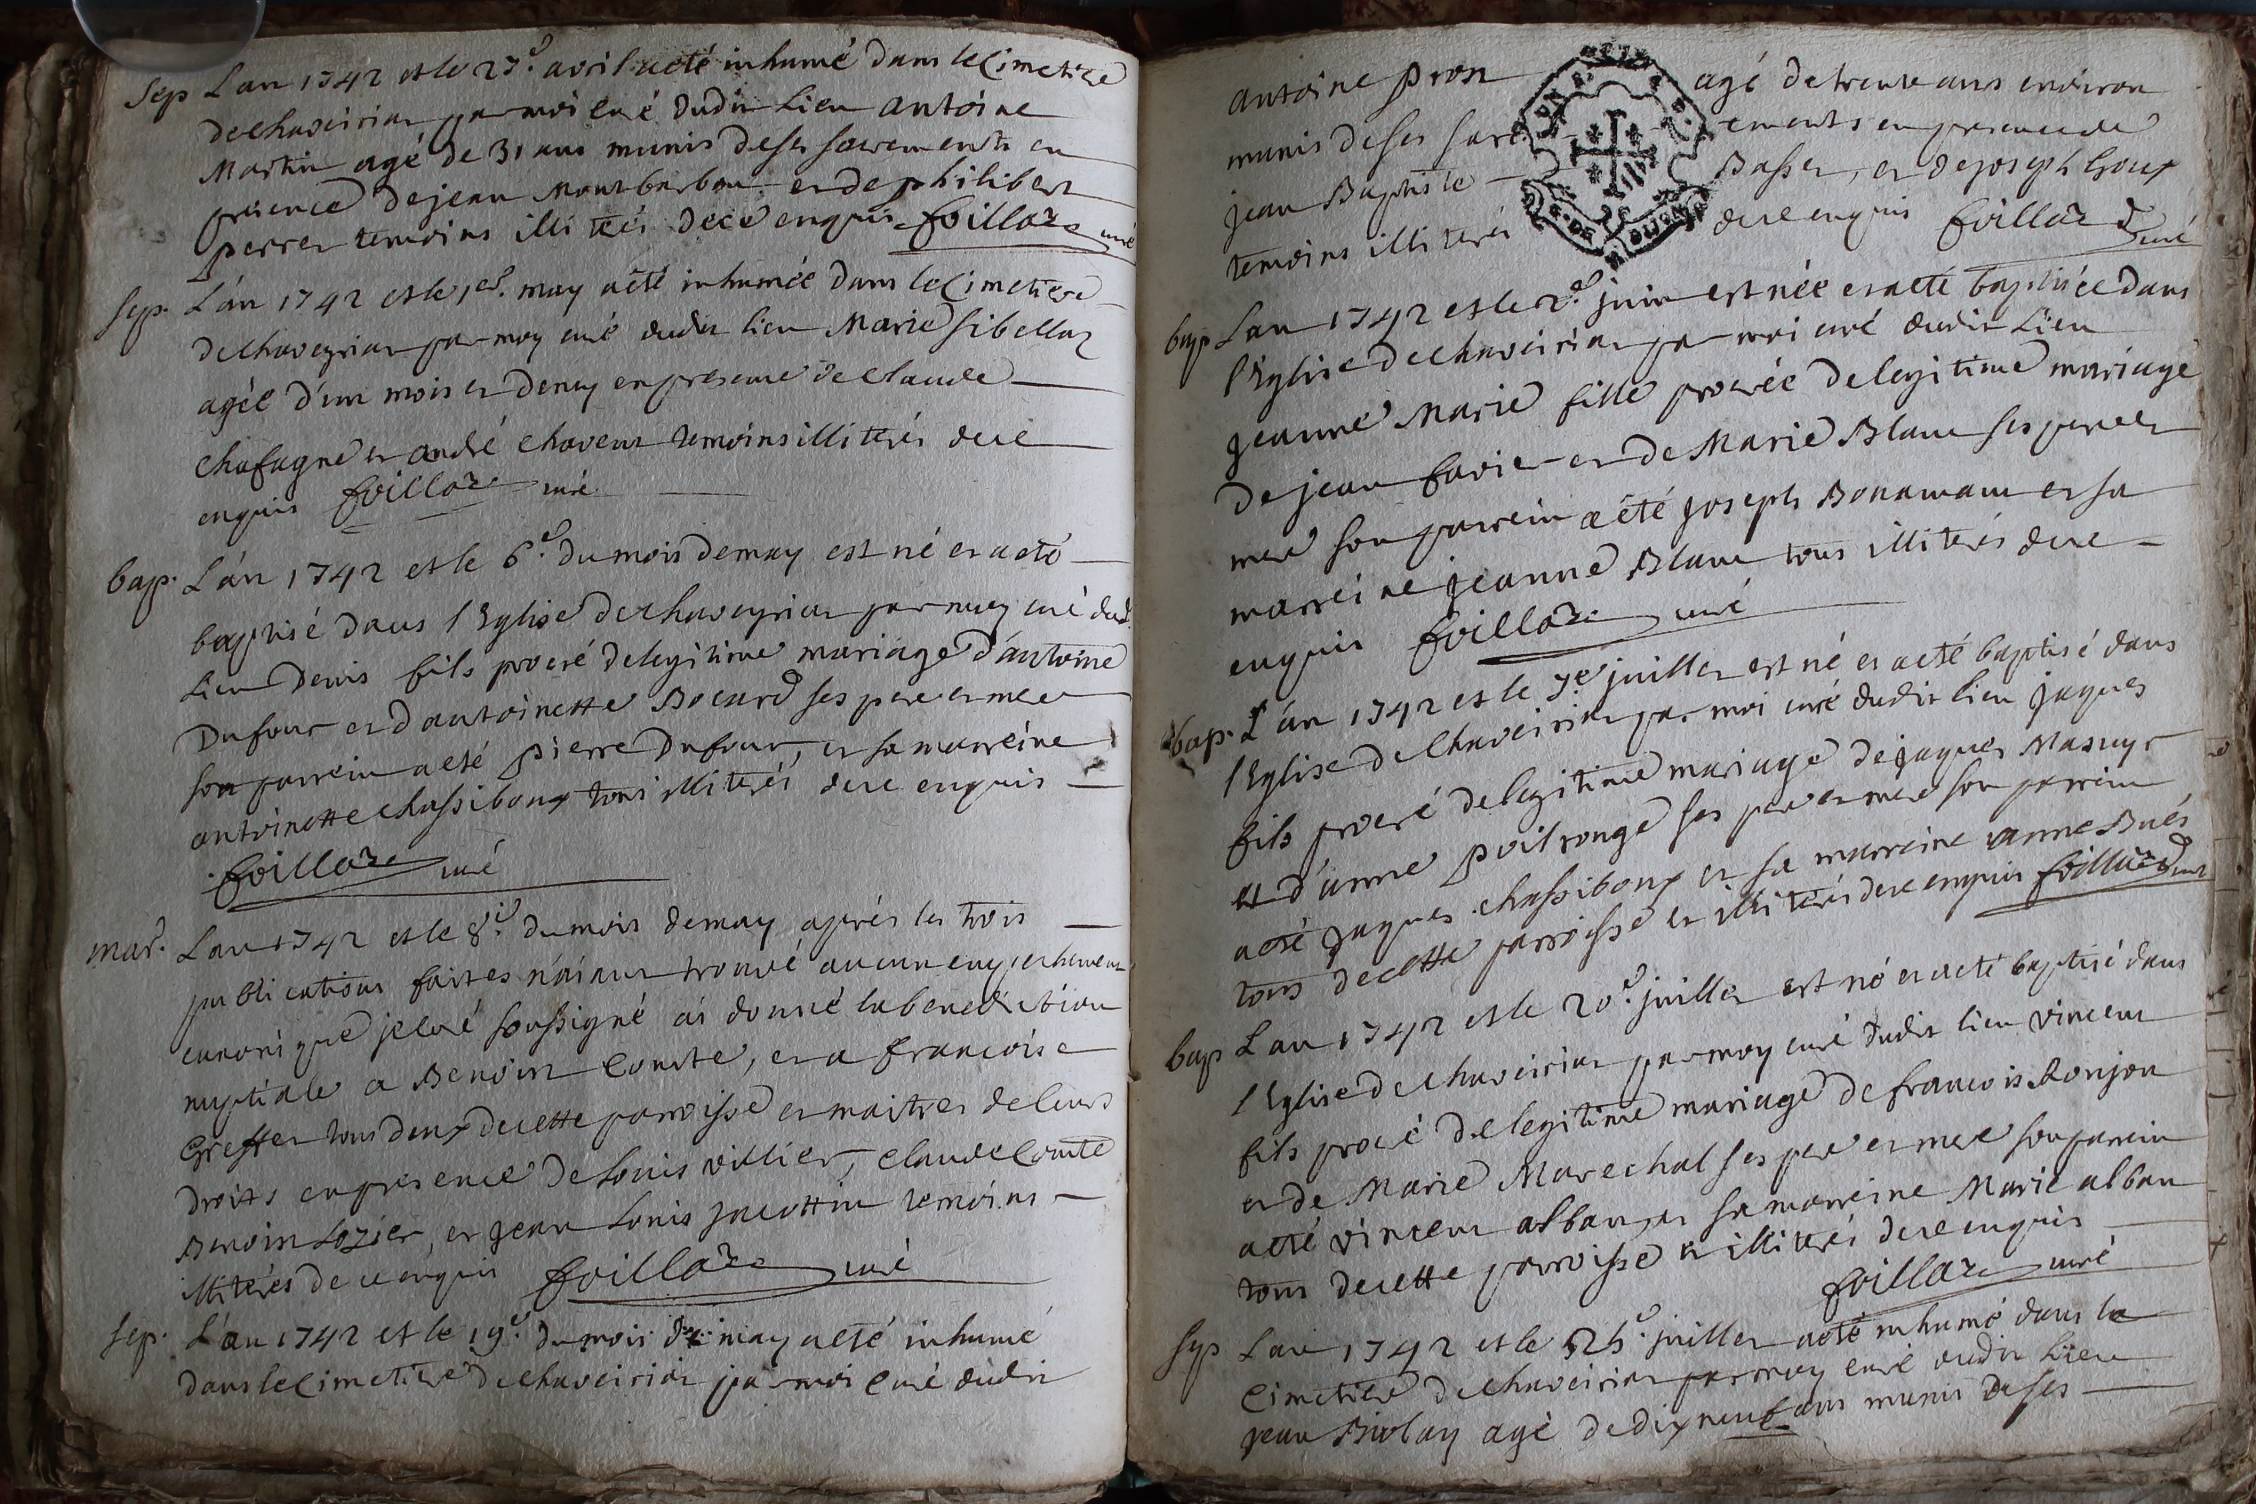 Sep L'an 1742 et le 27e. avril a eté inhumé dans le Cimetiere
de chaveiriat par moi curé dudit Lieu antoine
Martin agé de 31 ans munis de ses sacrements en
presence de jean Montbarbon et de philibert
perret temoins illiterés de ce enquis foillard curé
sep. L'an 1742 et le 1er. may a eté inhumée dans le Cimetiere
de chaveyriat par moy curé dudit lieu Marie sibellas
agée d'un mois et demy en presence de claude
chafagne et andré chavent temoins illiterés de ce
enquis foillard curé
bap. L'an 1742 et le 6e. du mois de may est né et a eté
baptisé dans l'Eglise de chaveyriat par moy curé dud.
Lieu Denis fils procré de legitime mariage d'antoine
Dufour et d'antoinette Bocard ses pere et mere
son parrein a eté pierre Dufour, et sa marreine
antoinette chassiboux tous illiterés de ce enquis
foillard curé
mar. L'an 1742 et le 8e. du mois de may aprés les trois
publications faites n'aiant trouvé aucun empechement
canonique je curé soussigné ai donné la benediction
nuptiale a Benoist Comte, et a francoise
Greffet tous deux de cette parroisse et maitres de leurs
droits en presence de Louis villier, claude Comte
Benoin Lozier, et jean Louis jacottin temoins
illiterés de ce enquis foillard curé
sep. L'an 1742 et le 19e. du mois de may a eté inhumé
dans le Cimetiere de chaveiriat par moi Curé dudit
antoine pron agé de trente ans environ
munis de ses sacrements en presence de
jean Baptiste Basset, et de joseph Goux
temoins illiterés de ce enquis foillard curé
bap L'an 1742 et le 2e. juin est née et a eté baptisée dans
l'Eglise de chaveiriat par moi curé dudit Lieu
jeanne Marie fille procrée de legitime mariage
de jean favier et de Marie Blanc ses pere et
mere son parrein a eté joseph Bonamant et sa
marreine jeanne Blanc tous illiterés de ce
enquis foillard curé
bap. L'an 1742 et le 7e juillet est né et a eté baptisé dans
l'Eglise de Chaveiriat par moi curé dudit lieu jaques
fils procré de legitime mariage de jaques Masuyr
et d'anne poilrouge ses pere et mere son parrein
a eté jaques chassiboux et sa marreine anne Bués
tous de cette parroisse et illiterés de ce enquis foillard curé
bap L'an 1742 et le 20e. juillet est né et a eté baptisé dans
l'Eglise de chaveiriat par moy curé dudit lieu vincent
fils procré de legitime mariage de francois Ronjon
et de Marie Marechal ses pere et mere son parrein
a eté vincent alban, et sa marreine Marie alban
tous de cette parroisse et illiterés de ce enquis
foillard curé
sep L'an 1742 et le 25e. juillet a eté inhumé dans le
Cimetiere de chaveiriat par moy curé dudit Lieu
jean Biolay agé de dix neuf ans munis de ses